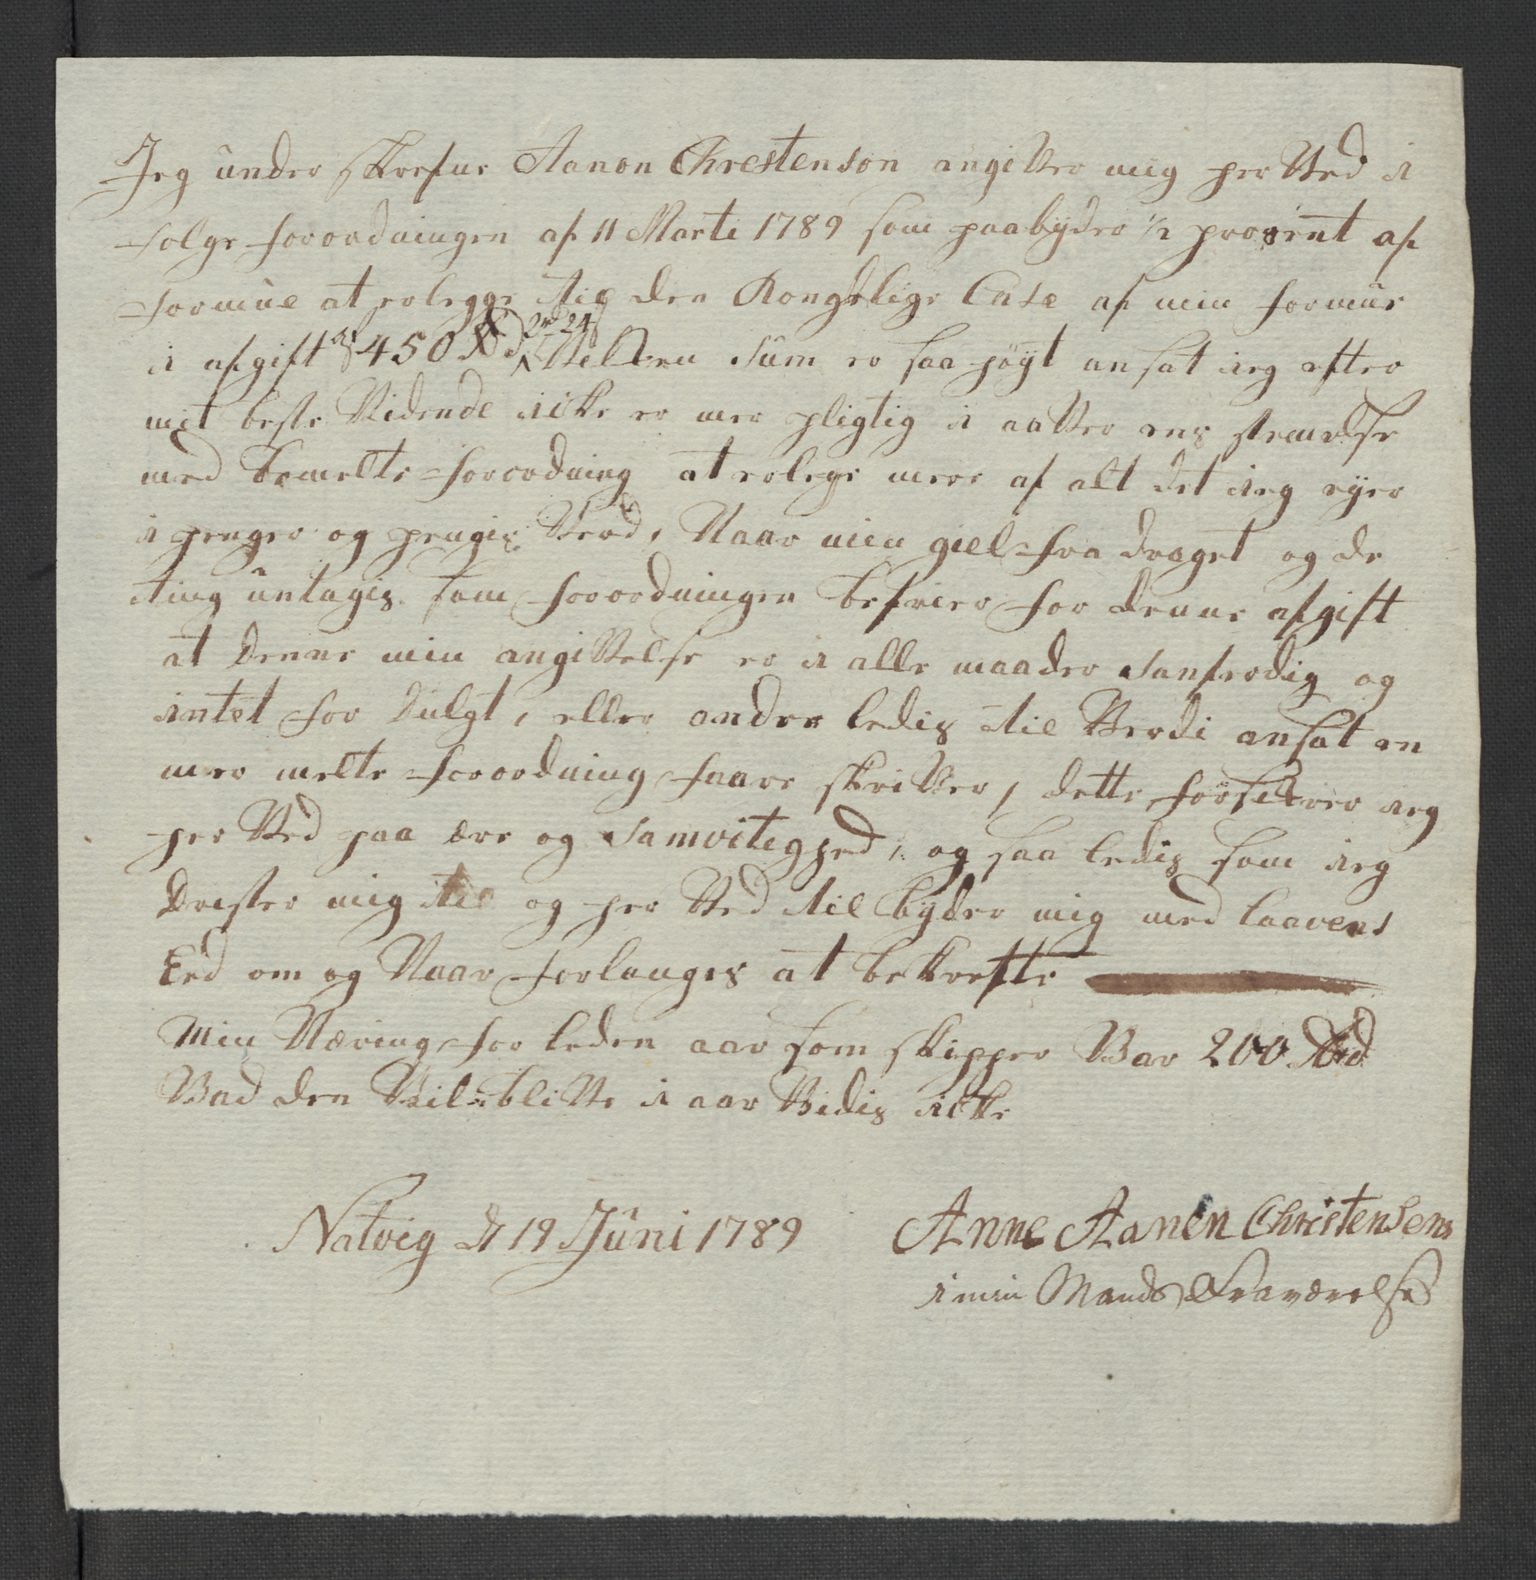 Jeg under skrefne Aanon Chrestenson angiver mig her ved i
følge forordningen af 11 Marti 1789 som paabÿder 1/2 prosent af
formue at erlegge til den Kongelige Case af min formue
i afgift af 450 Rd 2 rd 24 s hvilken sum er saa høÿt ansat ieg efter
mit beste Vidende icke er mer pligtig i aaver ens stemelse
med bemelte forordning at erlege mere af alt det ieg eÿer
i penger og pengis Verd, Naar min giel fra draget og de
ting untagis som forordningen befrier for denne afgift
at denne min angivelse er i alle maader sanferdig og
intet for dulgt, eller ander ledis til Verdi ansat en
mer melte forordning faare skriver, dette forsikrer ieg
her ved paa ære og samvitighed, og saa ledis som ieg
drister mig til og her ved til bÿder mig med laavens
Eed om og Naar forlanges at bekrefte
Min Næring for leden aar som skipper Var 200 Rd
Vad den Vil blive i aar Vidis icke
Natvig d 19 Juni 1789
Anne Aanen Christensens
i min Mands Fraværelse